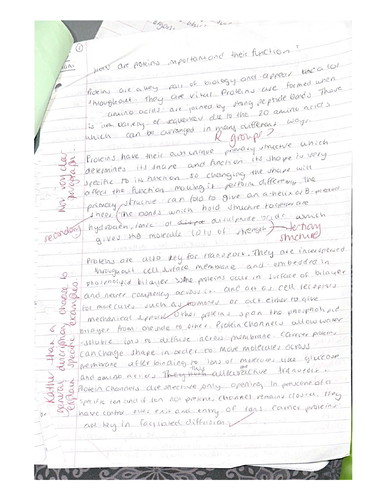 How are proteins important and their function?
Proteins are a key part of biology and appear
throughout. They are vital. Proteins are formed when
amino acids are joined by strong peptide bonds. There
is variety of due to the 20 amino acids
which can be arranged in many different ways.
R groups?
Proteins have their own unique primary structure which
determines its shape and function. Its shape is very
specific to its function so changing the shape will
affect the function making it perform differently. The
primary structure can fold to give an α helix or B-pleated
sheet. The bonds which hold structure together are
hydrogen, ionic or disulphide which
gives the molecule lots of strength
secondary
tertiary
structure
Non very clear
paragraph
Proteins are also key for transport. They are interspersed
throughout cell surface membrane and embedded in
phospholipid bilayer. Some proteins occur in surface of bilayer
and never completely across it and act as cell receptors
for molecules such as hormones or act either to give
mechanical support. Other proteins span the phospholipid
bilayer from one side to other. Protein channels allow water
soluble ions to diffuse across membrane. Carrier proteins
can change shape in order to move molecules across
membrane after binding to ions or molecules like glucose
and amino acids.
Protein channels are selective only opening in presence of a
specific ion and if ion not present, channel remains closed. They
have control over exit and entry of ions. Carrier proteins
are key in facilitated diffusion
Rather than a
general description change to
explain specific examples